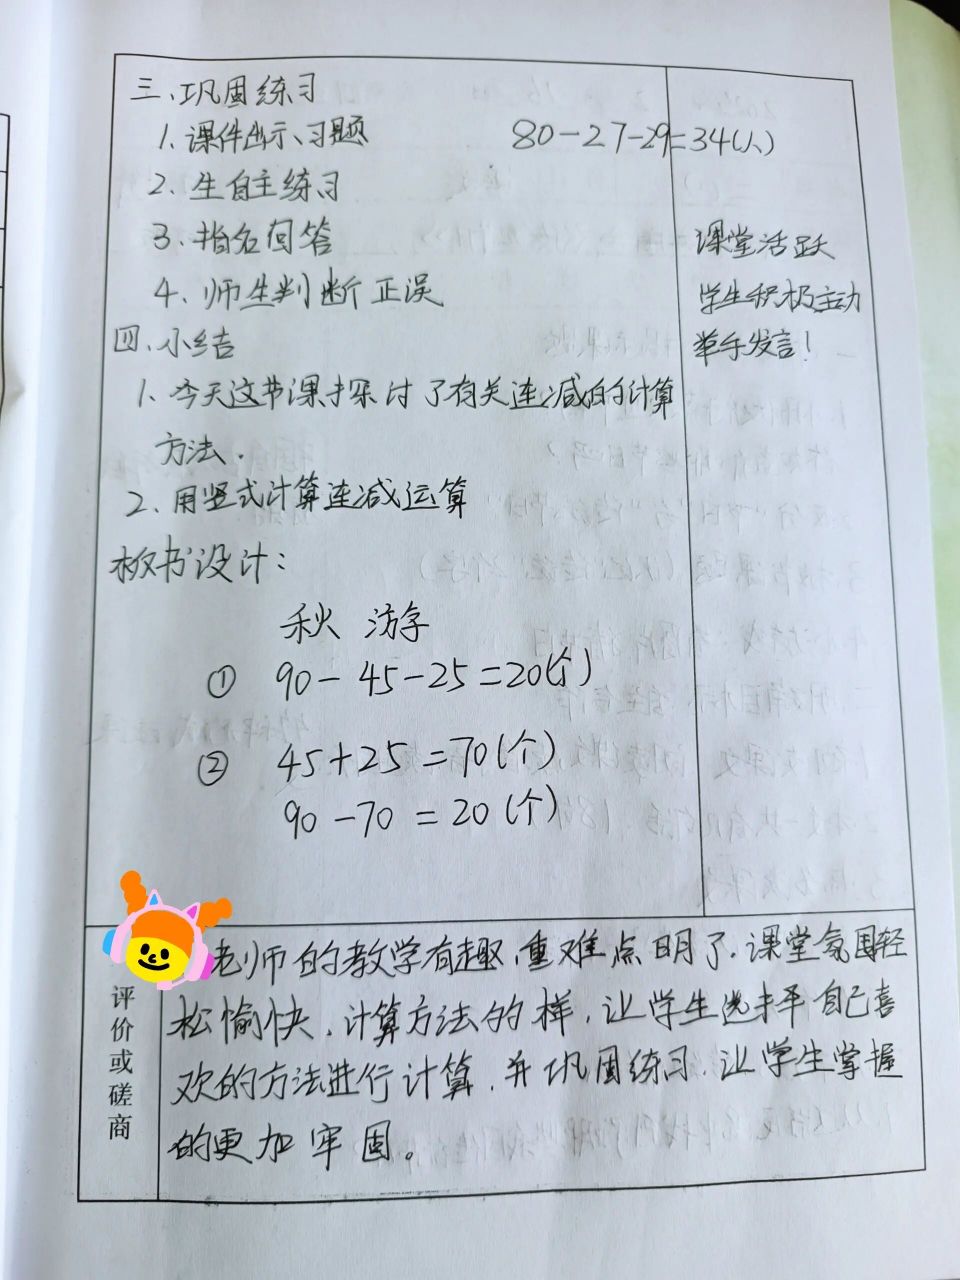 三、巩固练习
1、课件出示、习题
80-27-29=34(人)
2、生自主练习
3、指名回答
4、师生判断正误
课堂活跃
学生积极主动
举手发言!
四、小结
1、今天这节课探讨了有关连减的计算
方法.
2、用竖式计算连减运算
板书设计:
秋 游
① 90-45-25=20(个)
② 45+25=70(个)
90-70=20(个)
评价或磋商
老师的教学有趣,重难点明了.课堂氛围轻
松愉快,计算方法的样,让学生选择自己喜
欢的方法进行计算,并巩固练习,让学生掌握
的更加牢固。